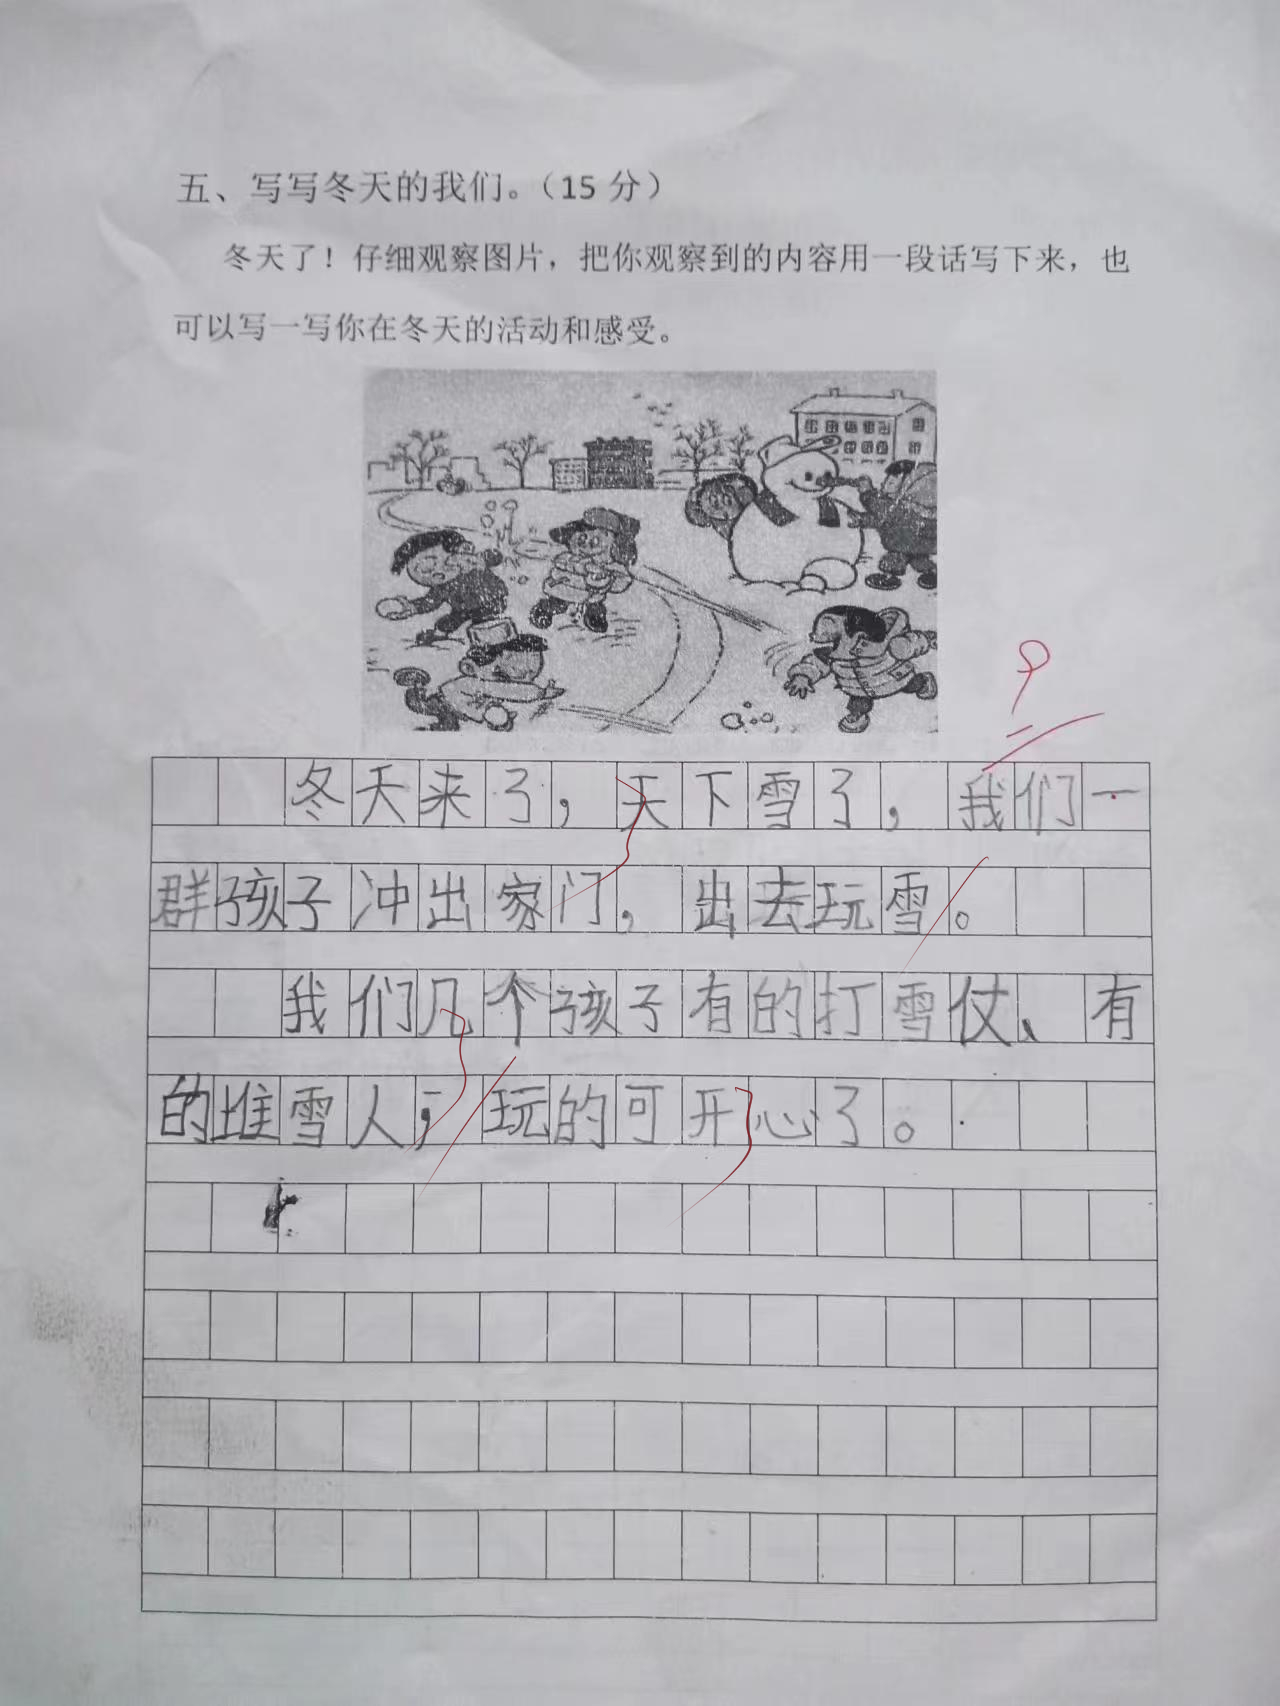 五、写写冬天的我们。（15 分）
冬天了！仔细观察图片，把你观察到的内容用一段话写下来，也
可以写一写你在冬天的活动和感受。
9
冬天来了，天下雪了，我们一
群孩子冲出家门，出去玩雪。
我们几个孩子有的打雪仗、有
的堆雪人，玩的可开心了。